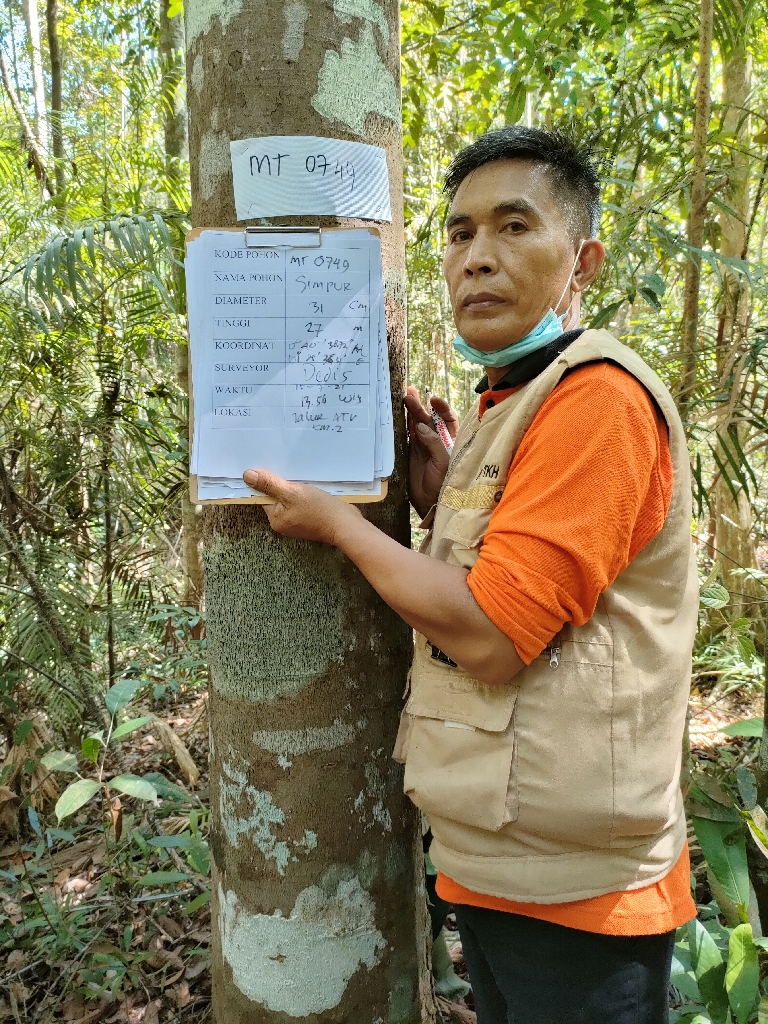 MT 0749
KODE POHON MT 0749
NAMA POHON Simpur
DIAMETER 31 Cm
TINGGI 27 m
KOORDINAT
SURVEYOR Dedis
WAKTU 13.56 WIB
LOKASI Jalur ATV
KM.2